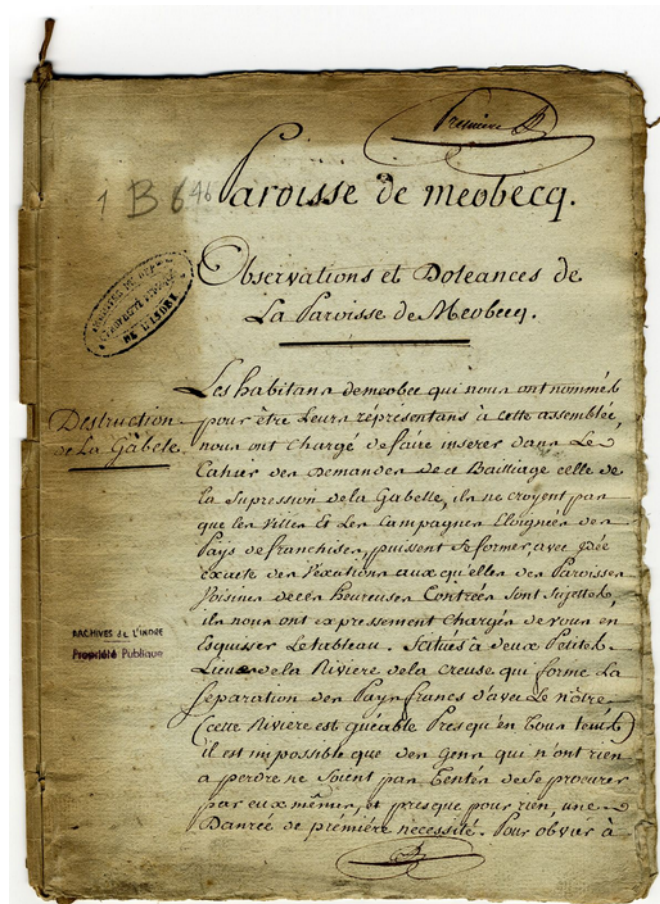 Premiere
1 B 646
Paroisse de meobecq.
Observations et Doleances de
La Paroisse de Meobecq.
Destruction
de La Gabele.
Les habitans demeobec qui nous ont nommés
pour être Leurs réprésentans à cette assemblée,
nous ont chargé defaire inserer dans Le
Cahier des Demandes de ce Bailliage celle de
la Supression dela Gabelle, ils ne croyent pas
que les villes Et Les Campagnes Eloignées des
Pays defranchises, puissent se former, avec idée
exacte des Vexations aux qu'elles des Paroisses
Voisines deces heureuses Contrées Sont Sujettes,
ils nous ont expressement Chargés devous en
Esquisser Letableau. Scitués à deux Petites
Lieues dela Riviere dela creuse qui forme La
Separation des Pays francs d'avec Le nôtre
(cette Riviere est guéable Presqu'en Tous tems)
il est impossible que des Gens qui n'ont rien
a perdre ne Soient pas Tentés dese procurer
par eux mêmes, et presque pour rien, une
Danrée de prémiére necessité. Pour obvier à
ARCHIVES de L'INDRE
Propriété Publique
DE L'INDRE